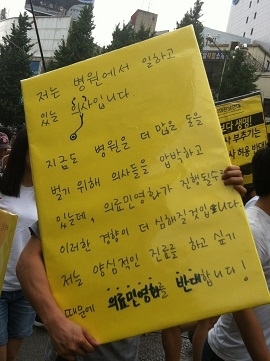 저는 병원에서 일하고
있는 의사입니다.
지금도 병원을 더 많을 돈을
벌기 위해 의사들을 압박하고
있는데, 의료민영화가 진행될수록
이러한 경향이 더 심해질것입니다
저는 양심적인 진료를 하고 싶기
때문에 의료민영화를 반대합니다!